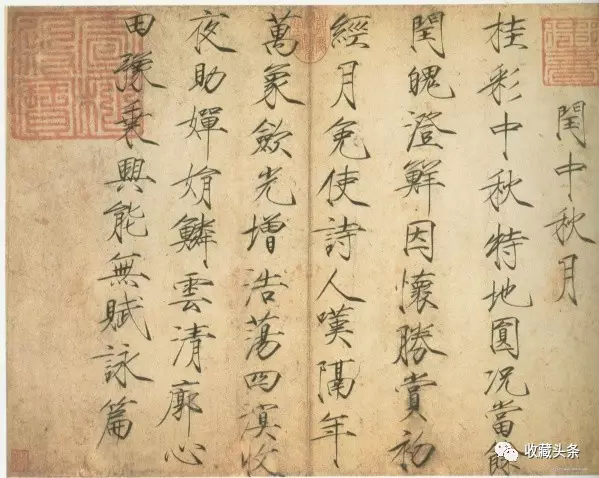 閏中秋月
桂彩中秋特地圓況當餘
閏魄澄鮮因懷勝賞初
經月免使詩人嘆隔年
萬象歛光增浩蕩四溟收
夜助嬋娟鱗雲清廓心
田豫乘興能無賦詠篇
收藏头条